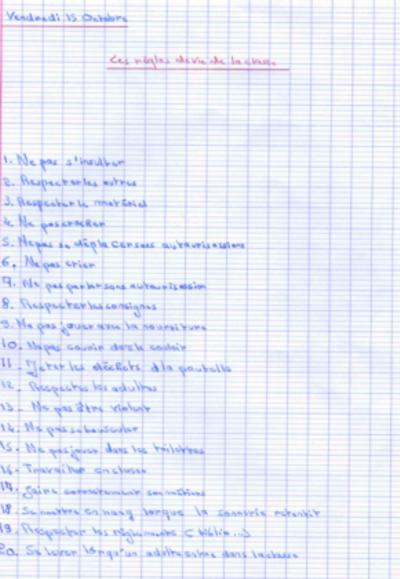 Vendredi 15 Octobre
Les règles de vie de la classe
1. Ne pas s'insulter
2. Respecter les autres
3. Respecter le matériel
4. Ne pas cracher
5. Ne pas se déplacer sans autaurisassions
6. Ne pas crier
7. Ne pas parler sans autaurisassion
8. Respecter les consignes
9. Ne pas jouer avec la nourriture
10. Ne pas courir dans le couloir
11. Jeter les déchets à la poubelle
12. Respecter les adultes
13. Ne pas être violent
14. Ne pas se bousculer
15. Ne pas jouer dans les toilettes
16. Travailler en classe
17. Faire correctement son métiers
18. Se mettre en rang lorque la sonnerie retentit
19. Respecter les règlements (biblio...)
20. Se lever lorsqu'un adulte entre dans la classe